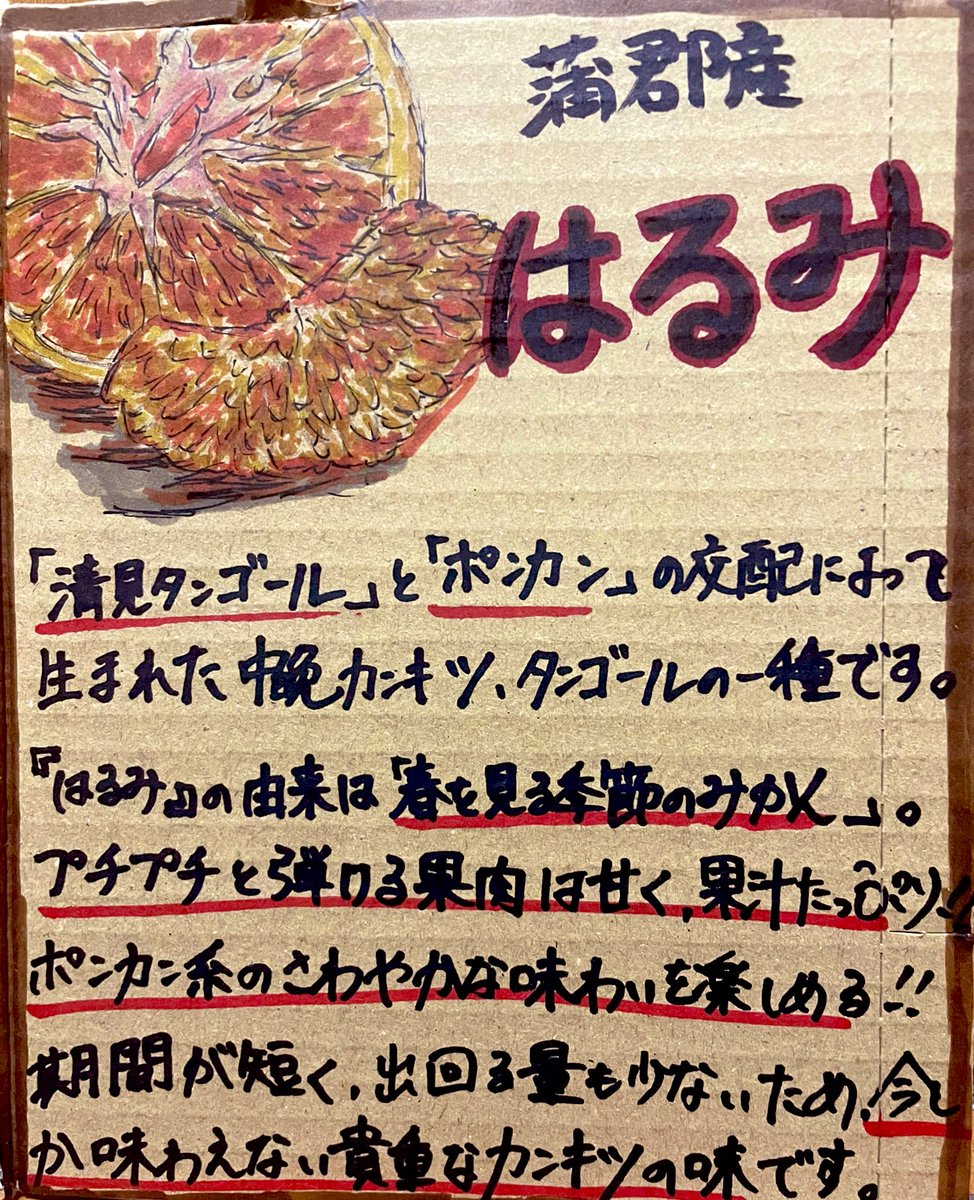 蒲郡産
はるみ
「清見タンゴール」と「ポンカン」の交配によって
生まれた中晩カンキツ、タンゴールの一種です。
『はるみ』の由来は「春を見る季節のみかん」。
プチプチと弾ける果肉は甘く、果汁たっぷり!!
ポンカン系のさわやかな味わいを楽しめる!!
期間が短く、出回る量も少ないため、今し
か味わえない貴重なカンキツの味です。